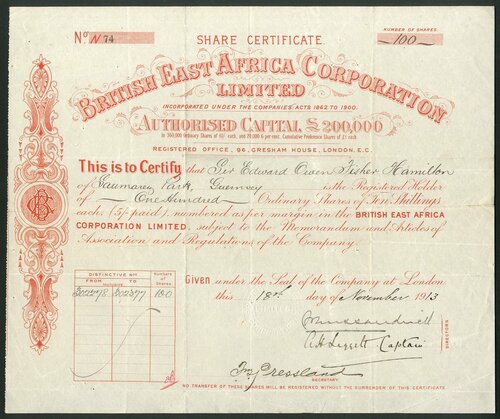 No N 74
SHARE CERTIFICATE.
NUMBER OF SHARES
100
BRITISH EAST AFRICA CORPORATION
LIMITED
INCORPORATED UNDER THE COMPANIES ACTS 1862 TO 1900.
AUTHORISED CAPITAL £200,000
In 360,000 Ordinary Shares of 10/- each, and 20,000 6 per cent. Cumulative Preference Shares of £1 each.
REGISTERED OFFICE, 96, GRESHAM HOUSE, LONDON, E.C.
This is to Certify that Sir Edward Owen Fisher Hamilton
of Saumarez Park, Guernsey is the Registered Holder
of One Hundred Ordinary Shares of Ten Shillings
each (5/- paid), numbered as per margin in the BRITISH EAST AFRICA
CORPORATION LIMITED, subject to the Memorandum and Articles of
Association and Regulations of the Company.
DISTINCTIVE Nos
Numbers of Shares
FROM Inclusive TO
302278 302377 100
Given under the Seal of the Company at London
this 18th day of November 1913
A H Leggett Captain
DIRECTORS
Pressland
SECRETARY
NO TRANSFER OF THESE SHARES WILL BE REGISTERED WITHOUT THE SURRENDER OF THIS CERTIFICATE